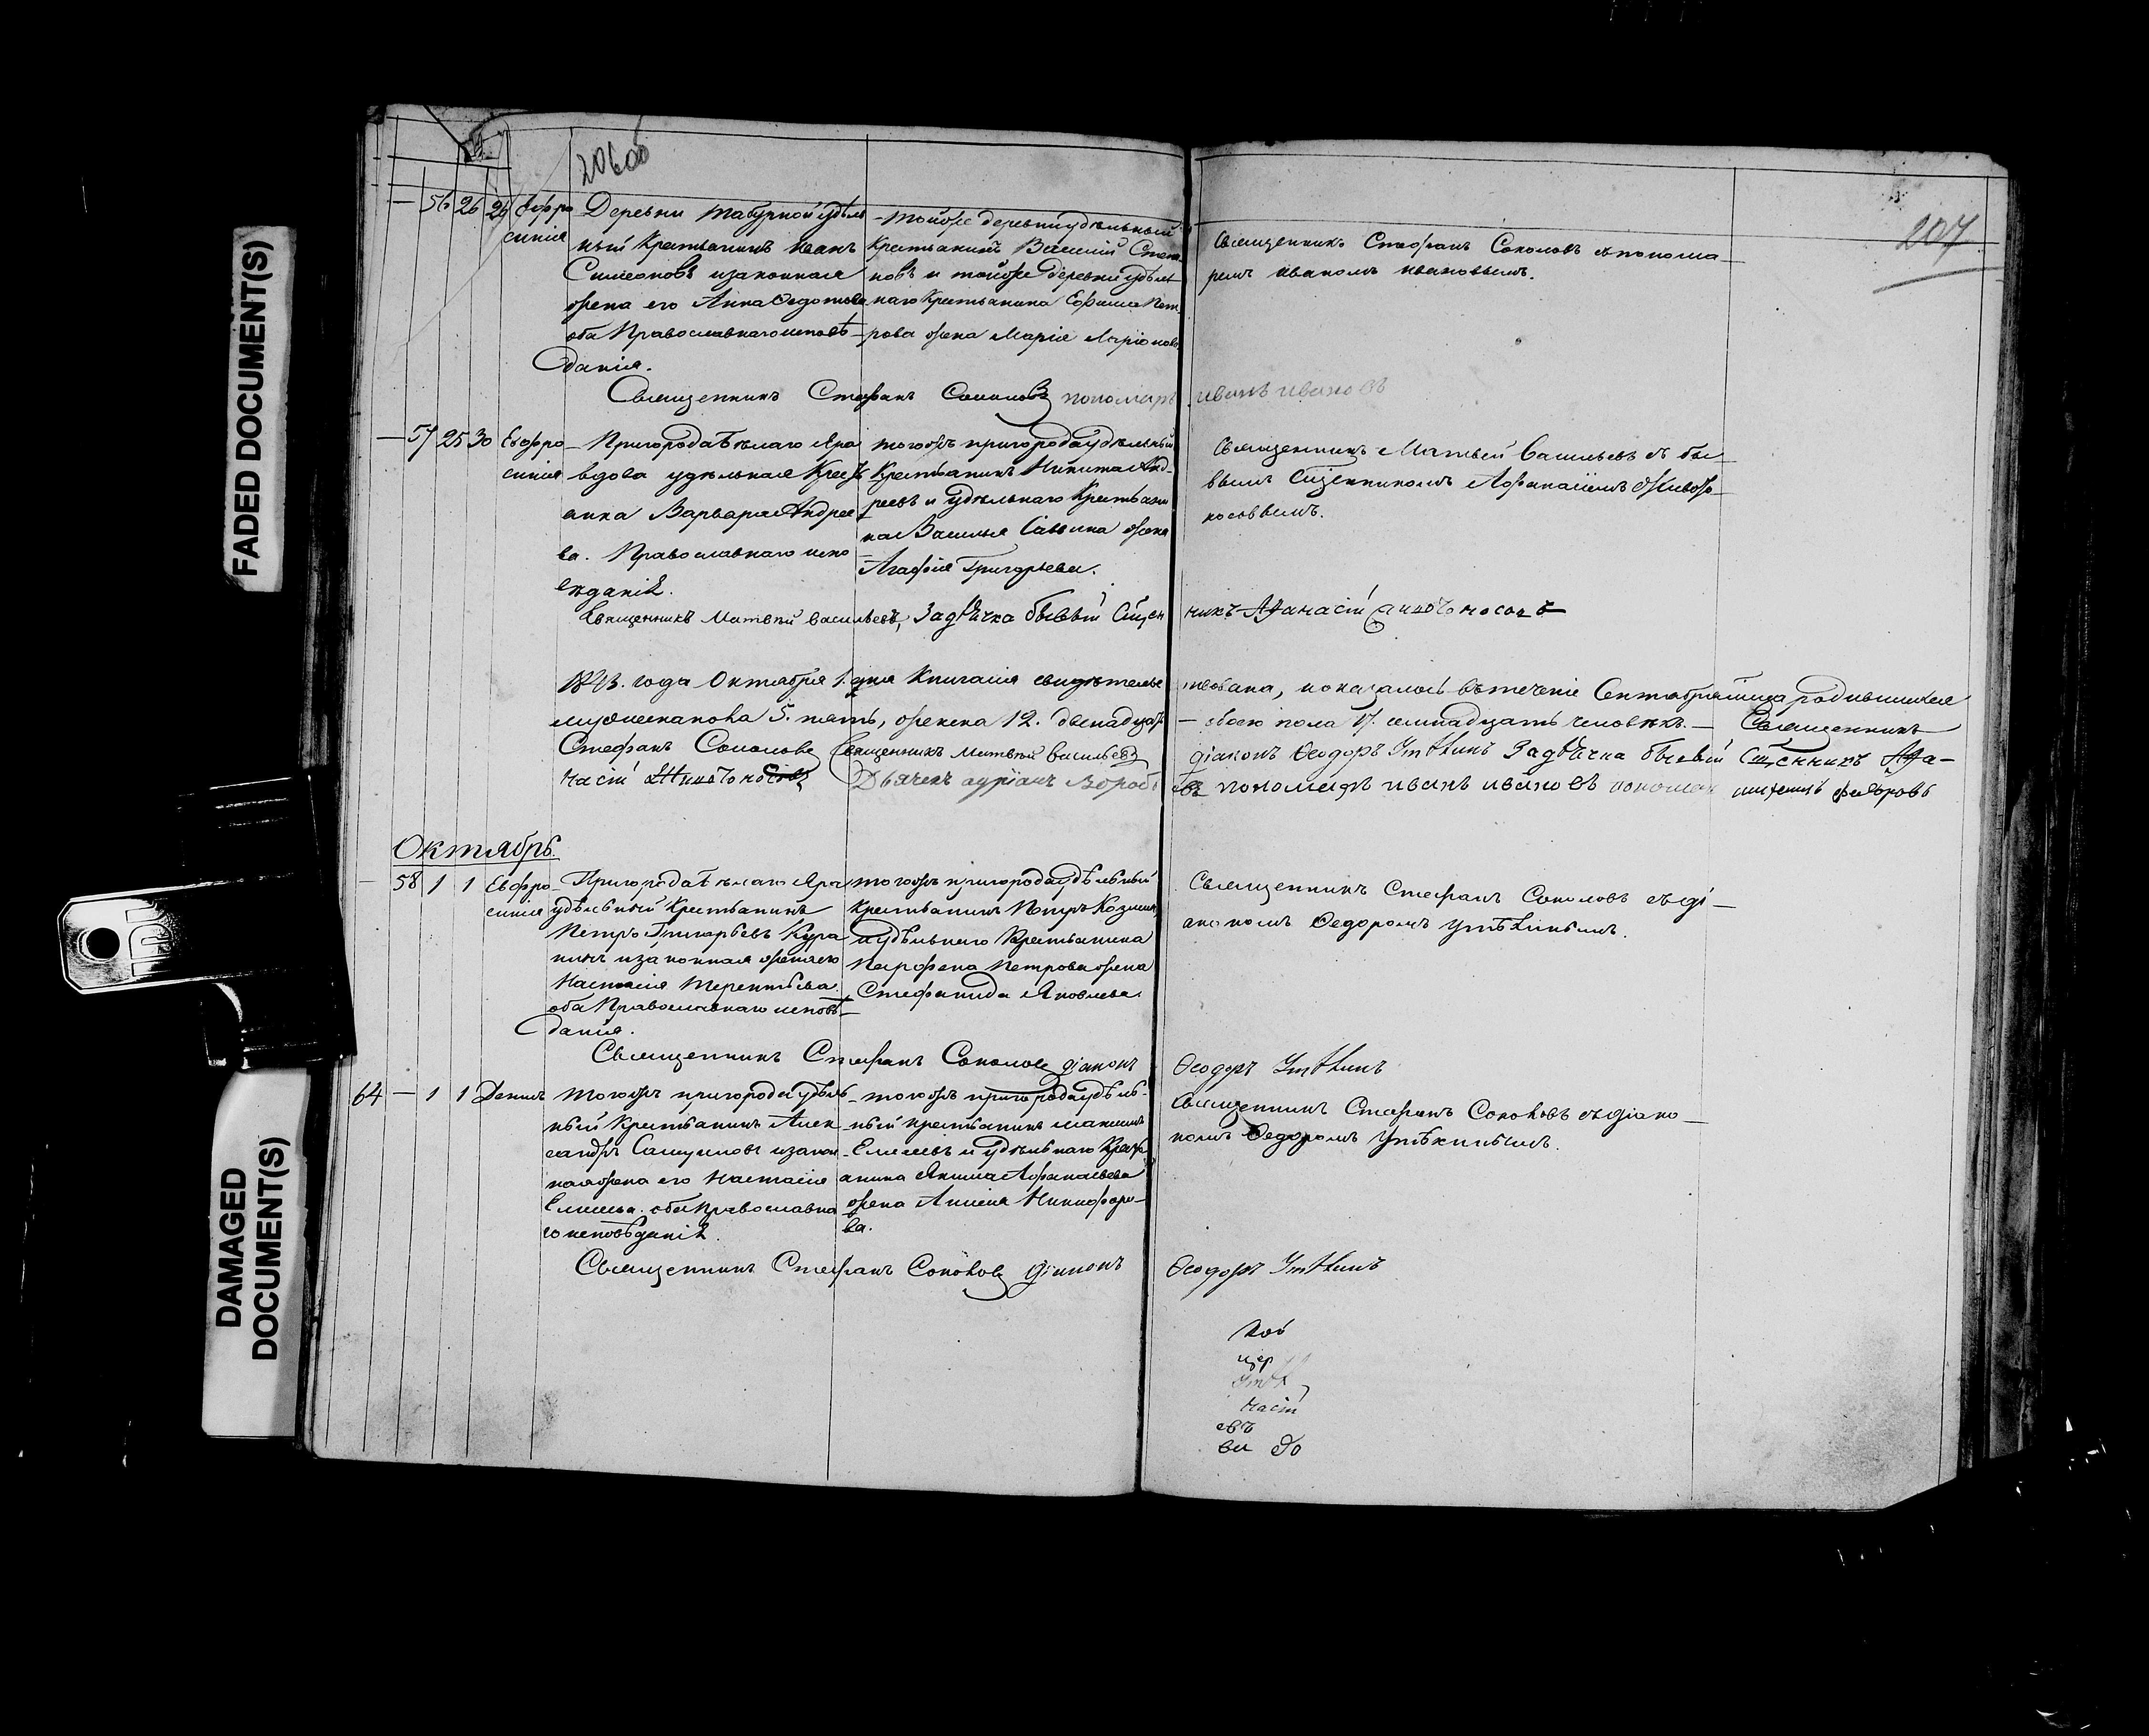 FADED DOCUMENT(S)
DAMAGED
DOCUMENT(S)
206об
207
— 56 26 29 Евфро
синія
Деревни Табурной удѣль
ный Крестьянинъ Иванъ
Симеоновъ и законная
жена его Анна Федотова
оба Православнаго исповѣ
данія.
тойже деревни удѣльный
Крестьянинъ Василій Степа
новъ и тойже деревни удѣль
наго Крестьянина Ефима Пет
рова жена Марія Ларіонова
Священникъ Стефанъ Соколовъ с понома
ремъ Иваномъ Ивановымъ.
Священникъ Стефанъ Соколовъ пономарь иванъ ивановъ
— 57 25 30 Евфро
синія
Пригорода Бѣлаго Яра
вдова удѣльная Кресть
анка Варвара Андрее
ва. Православнаго испо
вѣданія.
тогожъ пригорода удѣльный
Крестьянинъ Никита Анд
реевъ и удѣльнаго Крестьяни
на Василья Саввина жена
Агафія Григорьева.
Священникъ Матвей Васильевъ съ бы
вшимъ Сщенникомъ Афанасіемъ Живо
носовымъ.
Священникъ Матвѣй Васильевъ, За дьячка бывый Сщен никъ Афанасій
1843. года Октября 1. дня Книга сія свидѣтельс твована, показалось въ теченіе Сентября мца родившихся
мужеска пола 5. пять, женска 12. двенадцать — обоего пола 17. семнадцать человѣкъ. — Священникъ
Стефанъ Соколовъ Священникъ Матвѣй Васильевъ діаконъ Феодоръ Утѣкинъ За дьячка бывый Сщенникъ Афа—
насій Дьячекъ адріанъ Вороб евъ пономарь иванъ ивановъ пономарь федровъ
Октябрь.
— 58 1 1 Евфро
синія
Пригорода Бѣлаго Яра
удѣльный Крестьянинъ
Петръ Григорьевъ Кура
кинъ и законная жена его
Настасія Терентьева.
оба Православнаго исповѣ
данія.
тогожъ пригорода удѣльный
Крестьянинъ Петръ Козминъ
и удѣльнаго Крестьянина
Парфена Петрова жена
Стефанида Яковлева
Священникъ Стефанъ Соколовъ съ ді—
акономъ Федоромъ Утѣкинымъ.
Священникъ Стефанъ Соколовъ діаконъ Феодоръ Утѣкинъ
64 — 1 1 Данiилъ
Тогожъ пригорода удѣль
ный Крестьянинъ Алек
сандръ Самуиловъ и закон
ная жена его Настасія
Елисеева. оба Православна
го исповѣданія.
тогожъ пригорода удѣль
ный крестьянинъ
Елисеевъ и удѣльнаго Кресть
анина Якима Афанасьева
жена Никифоро
ва.
Священникъ Стефанъ Соколовъ съ діако—
номъ Федоромъ Утѣкинымъ.
Священникъ Стефанъ Соколовъ діаконъ Феодоръ Утѣкинъ
Утѣ
насій
евъ